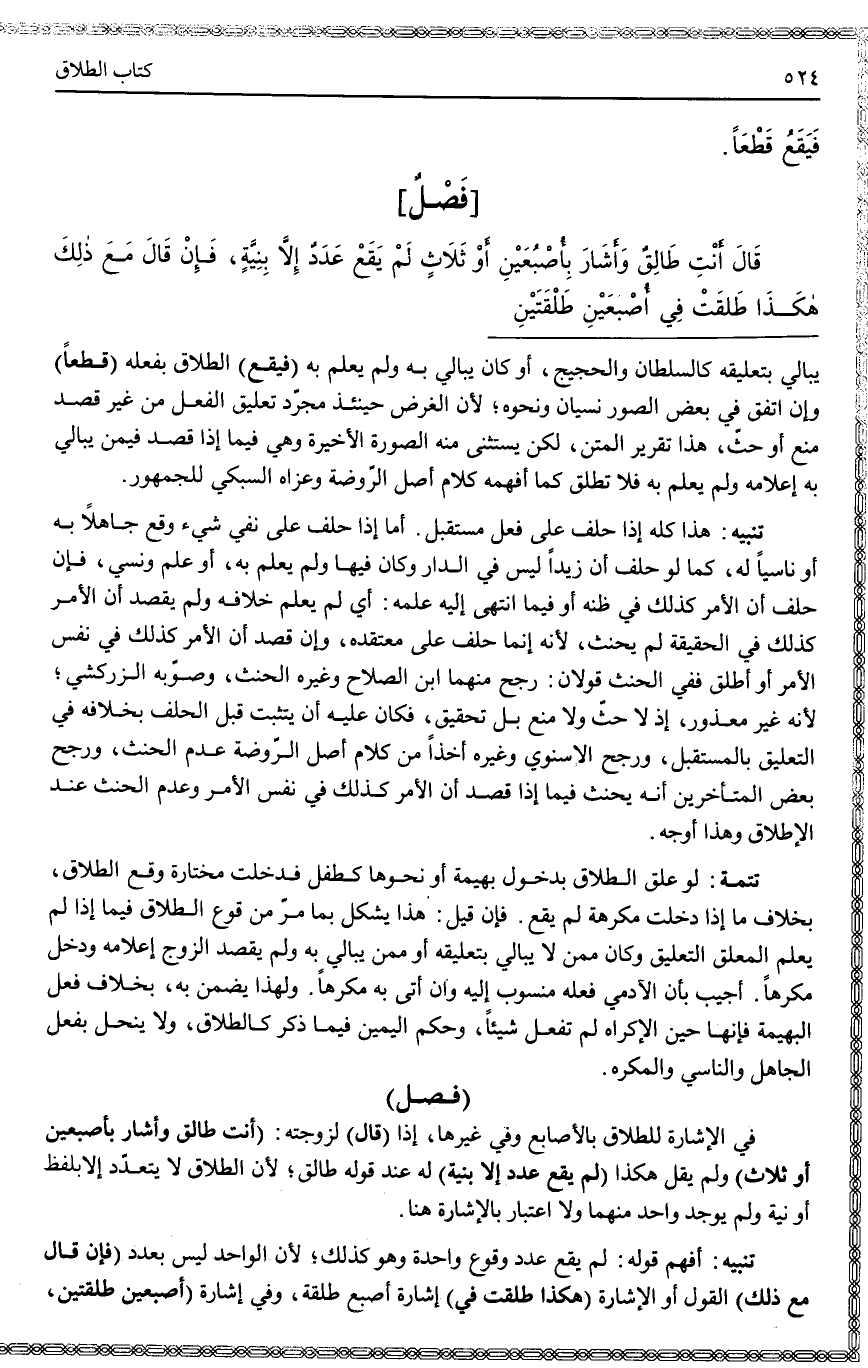 ٥٢٤ كتاب الطلاق
فَيَقَعُ قَطْعَاً.
[فَصْلٌ]
قَالَ أَنْتِ طَالِقٌ وَأَشَارَ بِأُصْبُعَيْنِ أَوْ ثَلَاثٍ لَمْ يَقَعْ عَدَدٌ إِلَّا بِنِيَّةٍ، فَإِنْ قَالَ مَعَ ذٰلِكَ
هٰكَذَا طَلقَتْ فِي أُصْبَعَيْنِ طَلْقَتَيْنِ
يبالي بتعليقه كالسلطان والحجيج، أو كان يبالي به ولم يعلم به (فيقع) الطلاق بفعله (قطعاً)
وإن اتفق في بعض الصور نسيان ونحوه؛ لأن الغرض حينئذ مجرّد تعليق الفعل من غير قصد
منع أو حثّ، هذا تقرير المتن، لكن يستثنى منه الصورة الأخيرة وهي فيما إذا قصد فيمن يبالي
به إعلامه ولم يعلم به فلا تطلق كما أفهمه كلام أصل الرّوضة وعزاه السبكي للجمهور.
تنبيه: هذا كله إذا حلف على فعل مستقبل. أما إذا حلف على نفي شيء وقع جاهلاً به
أو ناسياً له، كما لو حلف أن زيداً ليس في الدار وكان فيها ولم يعلم به، أو علم ونسي، فإن
حلف أن الأمر كذلك في ظنه أو فيما انتهى إليه علمه: أي لم يعلم خلافه ولم يقصد أن الأمر
كذلك في الحقيقة لم يحنث، لأنه إنما حلف على معتقده، وإن قصد أن الأمر كذلك في نفس
الأمر أو أطلق ففي الحنث قولان: رجح منهما ابن الصلاح وغيره الحنث، وصوّبه الزركشي؛
لأنه غير معذور، إذ لا حثّ ولا منع بل تحقيق، فكان عليه أن يتثبت قبل الحلف بخلافه في
التعليق بالمستقبل، ورجح الاسنوي وغيره أخذاً من كلام أصل الرّوضة عدم الحنث، ورجح
بعض المتأخرين أنه يحنث فيما إذا قصد أن الأمر كذلك في نفس الأمر وعدم الحنث عند
الإطلاق وهذا أوجه.
تتمة: لو علق الطلاق بدخول بهيمة أو نحوها كطفل فدخلت مختارة وقع الطلاق،
بخلاف ما إذا دخلت مكرهة لم يقع. فإن قيل: هذا يشكل بما مرّ من قوع الطلاق فيما إذا لم
يعلم المعلق التعليق وكان ممن لا يبالي بتعليقه أو ممن يبالي به ولم يقصد الزوج إعلامه ودخل
مكرهاً. أجيب بأن الآدمي فعله منسوب إليه وان أتى به مكرهاً. ولهذا يضمن به، بخلاف فعل
البهيمة فإنها حين الإكراه لم تفعل شيئاً، وحكم اليمين فيما ذكر كالطلاق، ولا ينحل بفعل
الجاهل والناسي والمكره.
(فصل)
في الإشارة للطلاق بالأصابع وفي غيرها، إذا (قال) لزوجته: (أنت طالق وأشار بأصبعين
أو ثلاث) ولم يقل هكذا (لم يقع عدد إلا بنية) له عند قوله طالق؛ لأن الطلاق لا يتعدّد إلابلفظ
أو نية ولم يوجد واحد منهما ولا اعتبار بالإشارة هنا.
تنبيه: أفهم قوله: لم يقع عدد وقوع واحدة وهو كذلك؛ لأن الواحد ليس بعدد (فإن قال
مع ذلك) القول أو الإشارة (هكذا طلقت في) إشارة أصبع طلقة، وفي إشارة (أصبعين طلقتين،